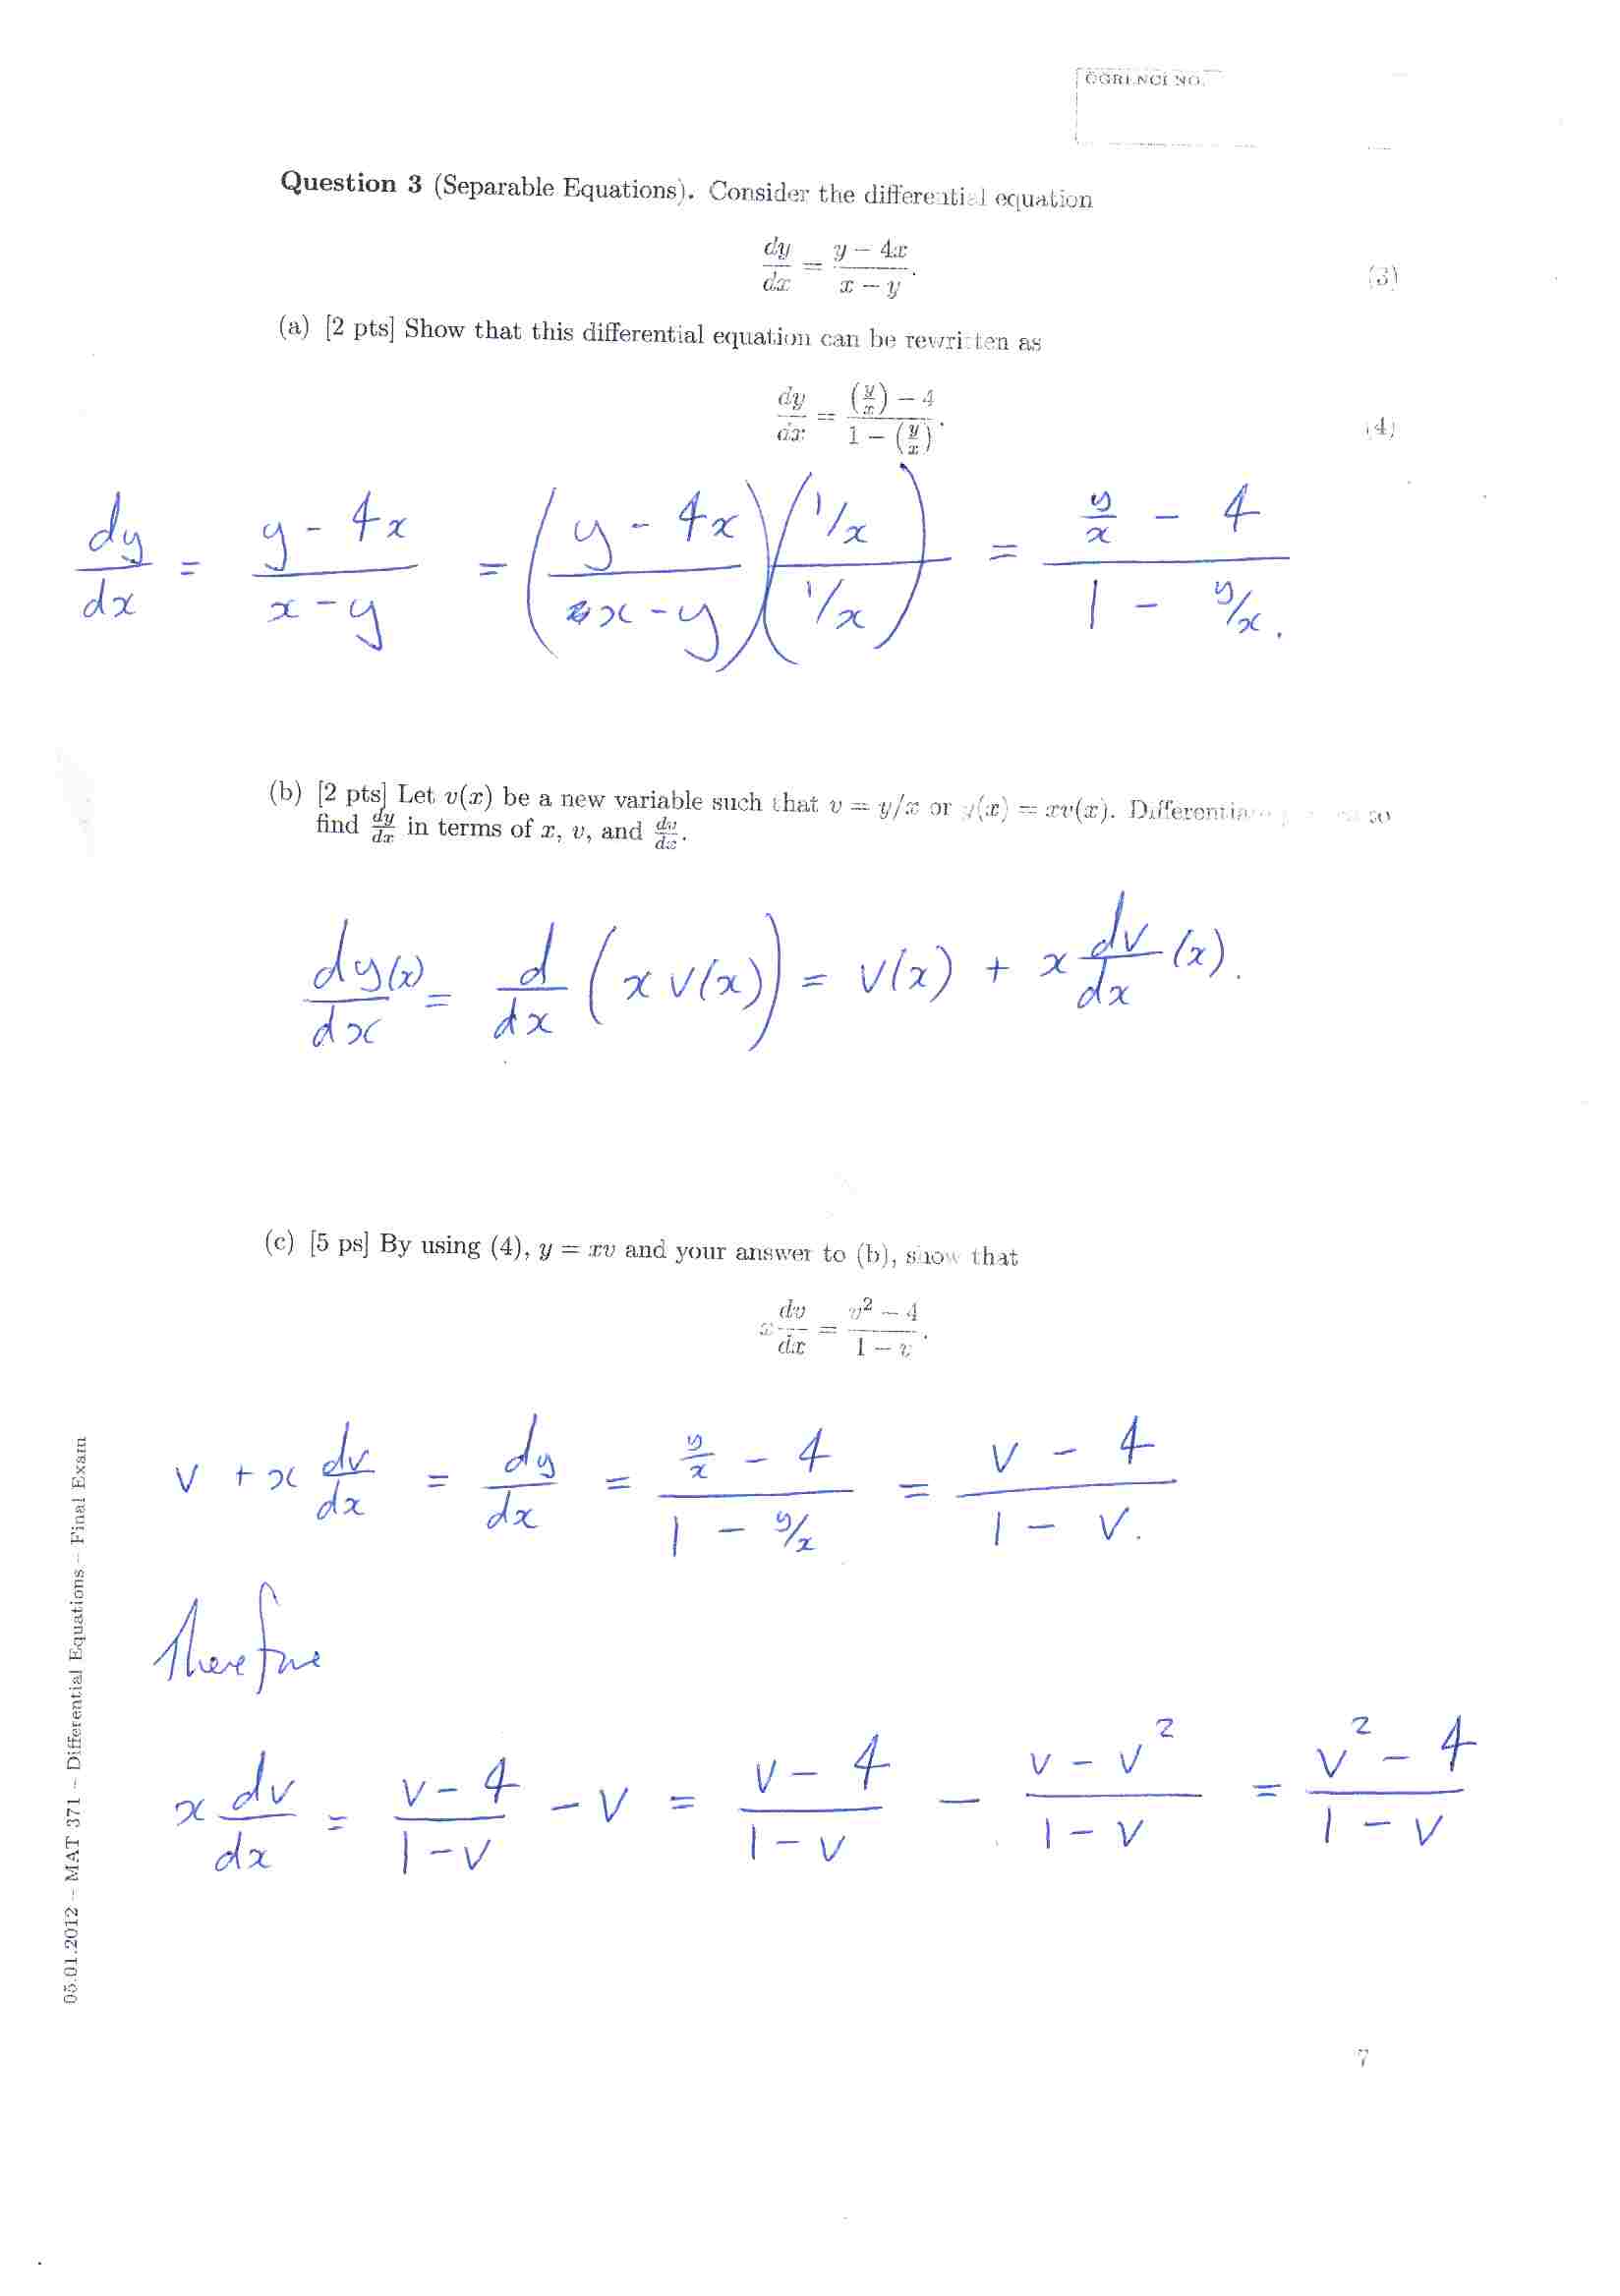 ÖĞRENCİ NO.
Question 3 (Separable Equations). Consider the differential equation
dy/dx = (y − 4x)/(x − y). (3)
(a) [2 pts] Show that this differential equation can be rewritten as
dy/dx = ((y/x) − 4)/(1 − (y/x)). (4)
dy/dx = (y - 4x)/(x - y) = ((y - 4x)/(x - y))((1/x)/(1/x)) = (y/x - 4)/(1 - y/x).
(b) [2 pts] Let v(x) be a new variable such that v = y/x or y(x) = xv(x). Differentiate
find dy/dx in terms of x, v, and dv/dx.
dy(x)/dx = d/dx (x v(x)) = v(x) + x dv/dx (x).
(c) [5 ps] By using (4), y = xv and your answer to (b), show that
x dv/dx = (v² − 4)/(1 − v).
v + x dv/dx = dy/dx = (y/x - 4)/(1 - y/x) = (v - 4)/(1 - v).
Therefore
x dv/dx = (v - 4)/(1 - v) - v = (v - 4)/(1 - v) - (v - v²)/(1 - v) = (v² - 4)/(1 - v)
05.01.2012 – MAT 371 – Differential Equations – Final Exam
7